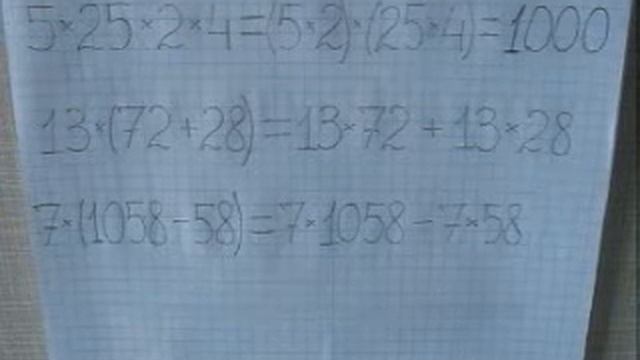 5×25×2×4=(5×2)×(25×4)=1000
13×(72+28)=13×72+13×28
7×(1058-58)=7×1058-7×58